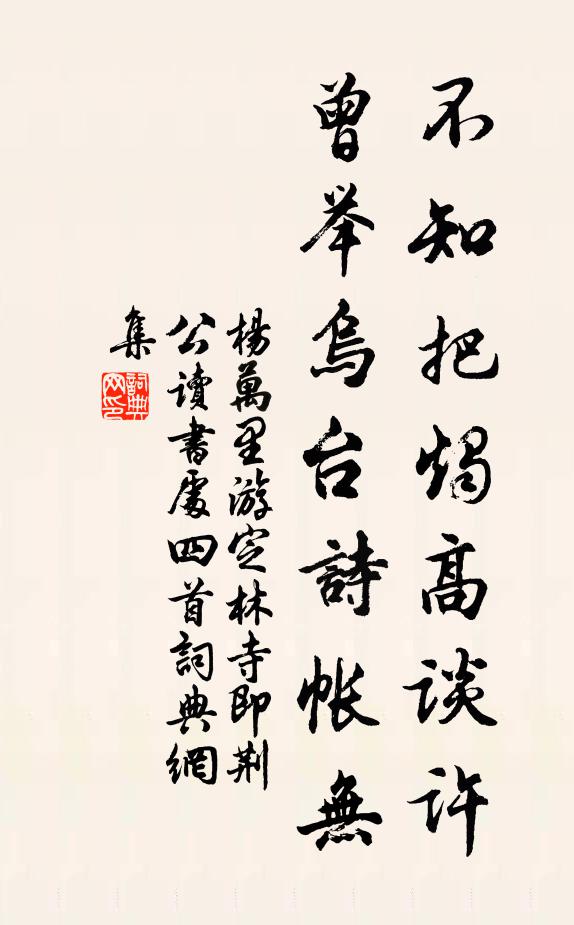 不知把燭高談許
曾举烏台詩帐無
楊萬里游定林寺即荆
公讀書處四首詞典網
集
詞典
网印